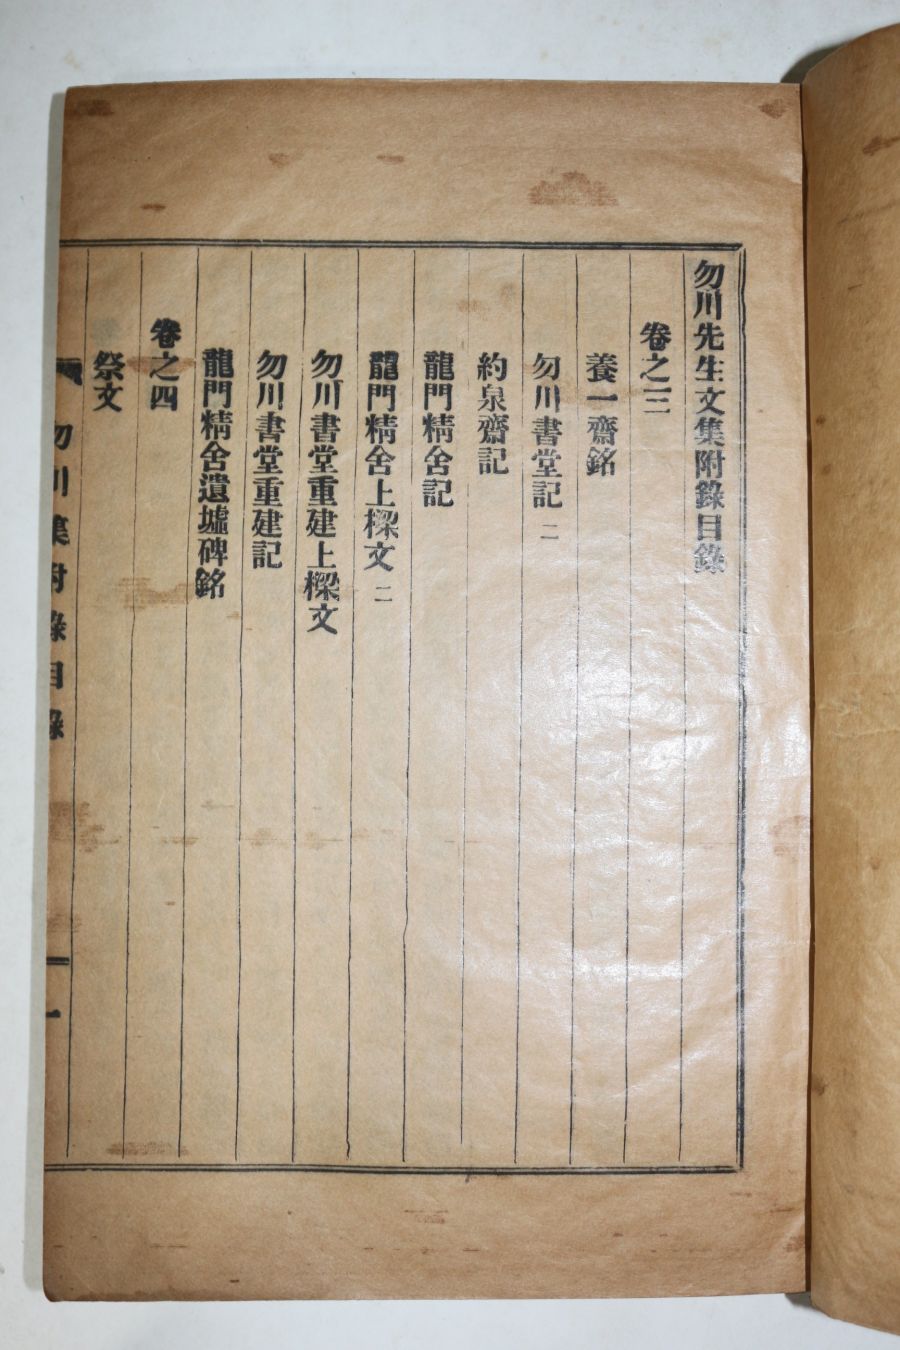 勿川先生文集附錄目錄
卷之三
養一齋銘
勿川書堂記 二
約泉齋記
龍門精舍記
龍門精舍上樑文 二
勿川書堂重建上樑文
勿川書堂重建記
龍門精舍遺墟碑銘
卷之四
祭文
勿川集附錄目錄
一